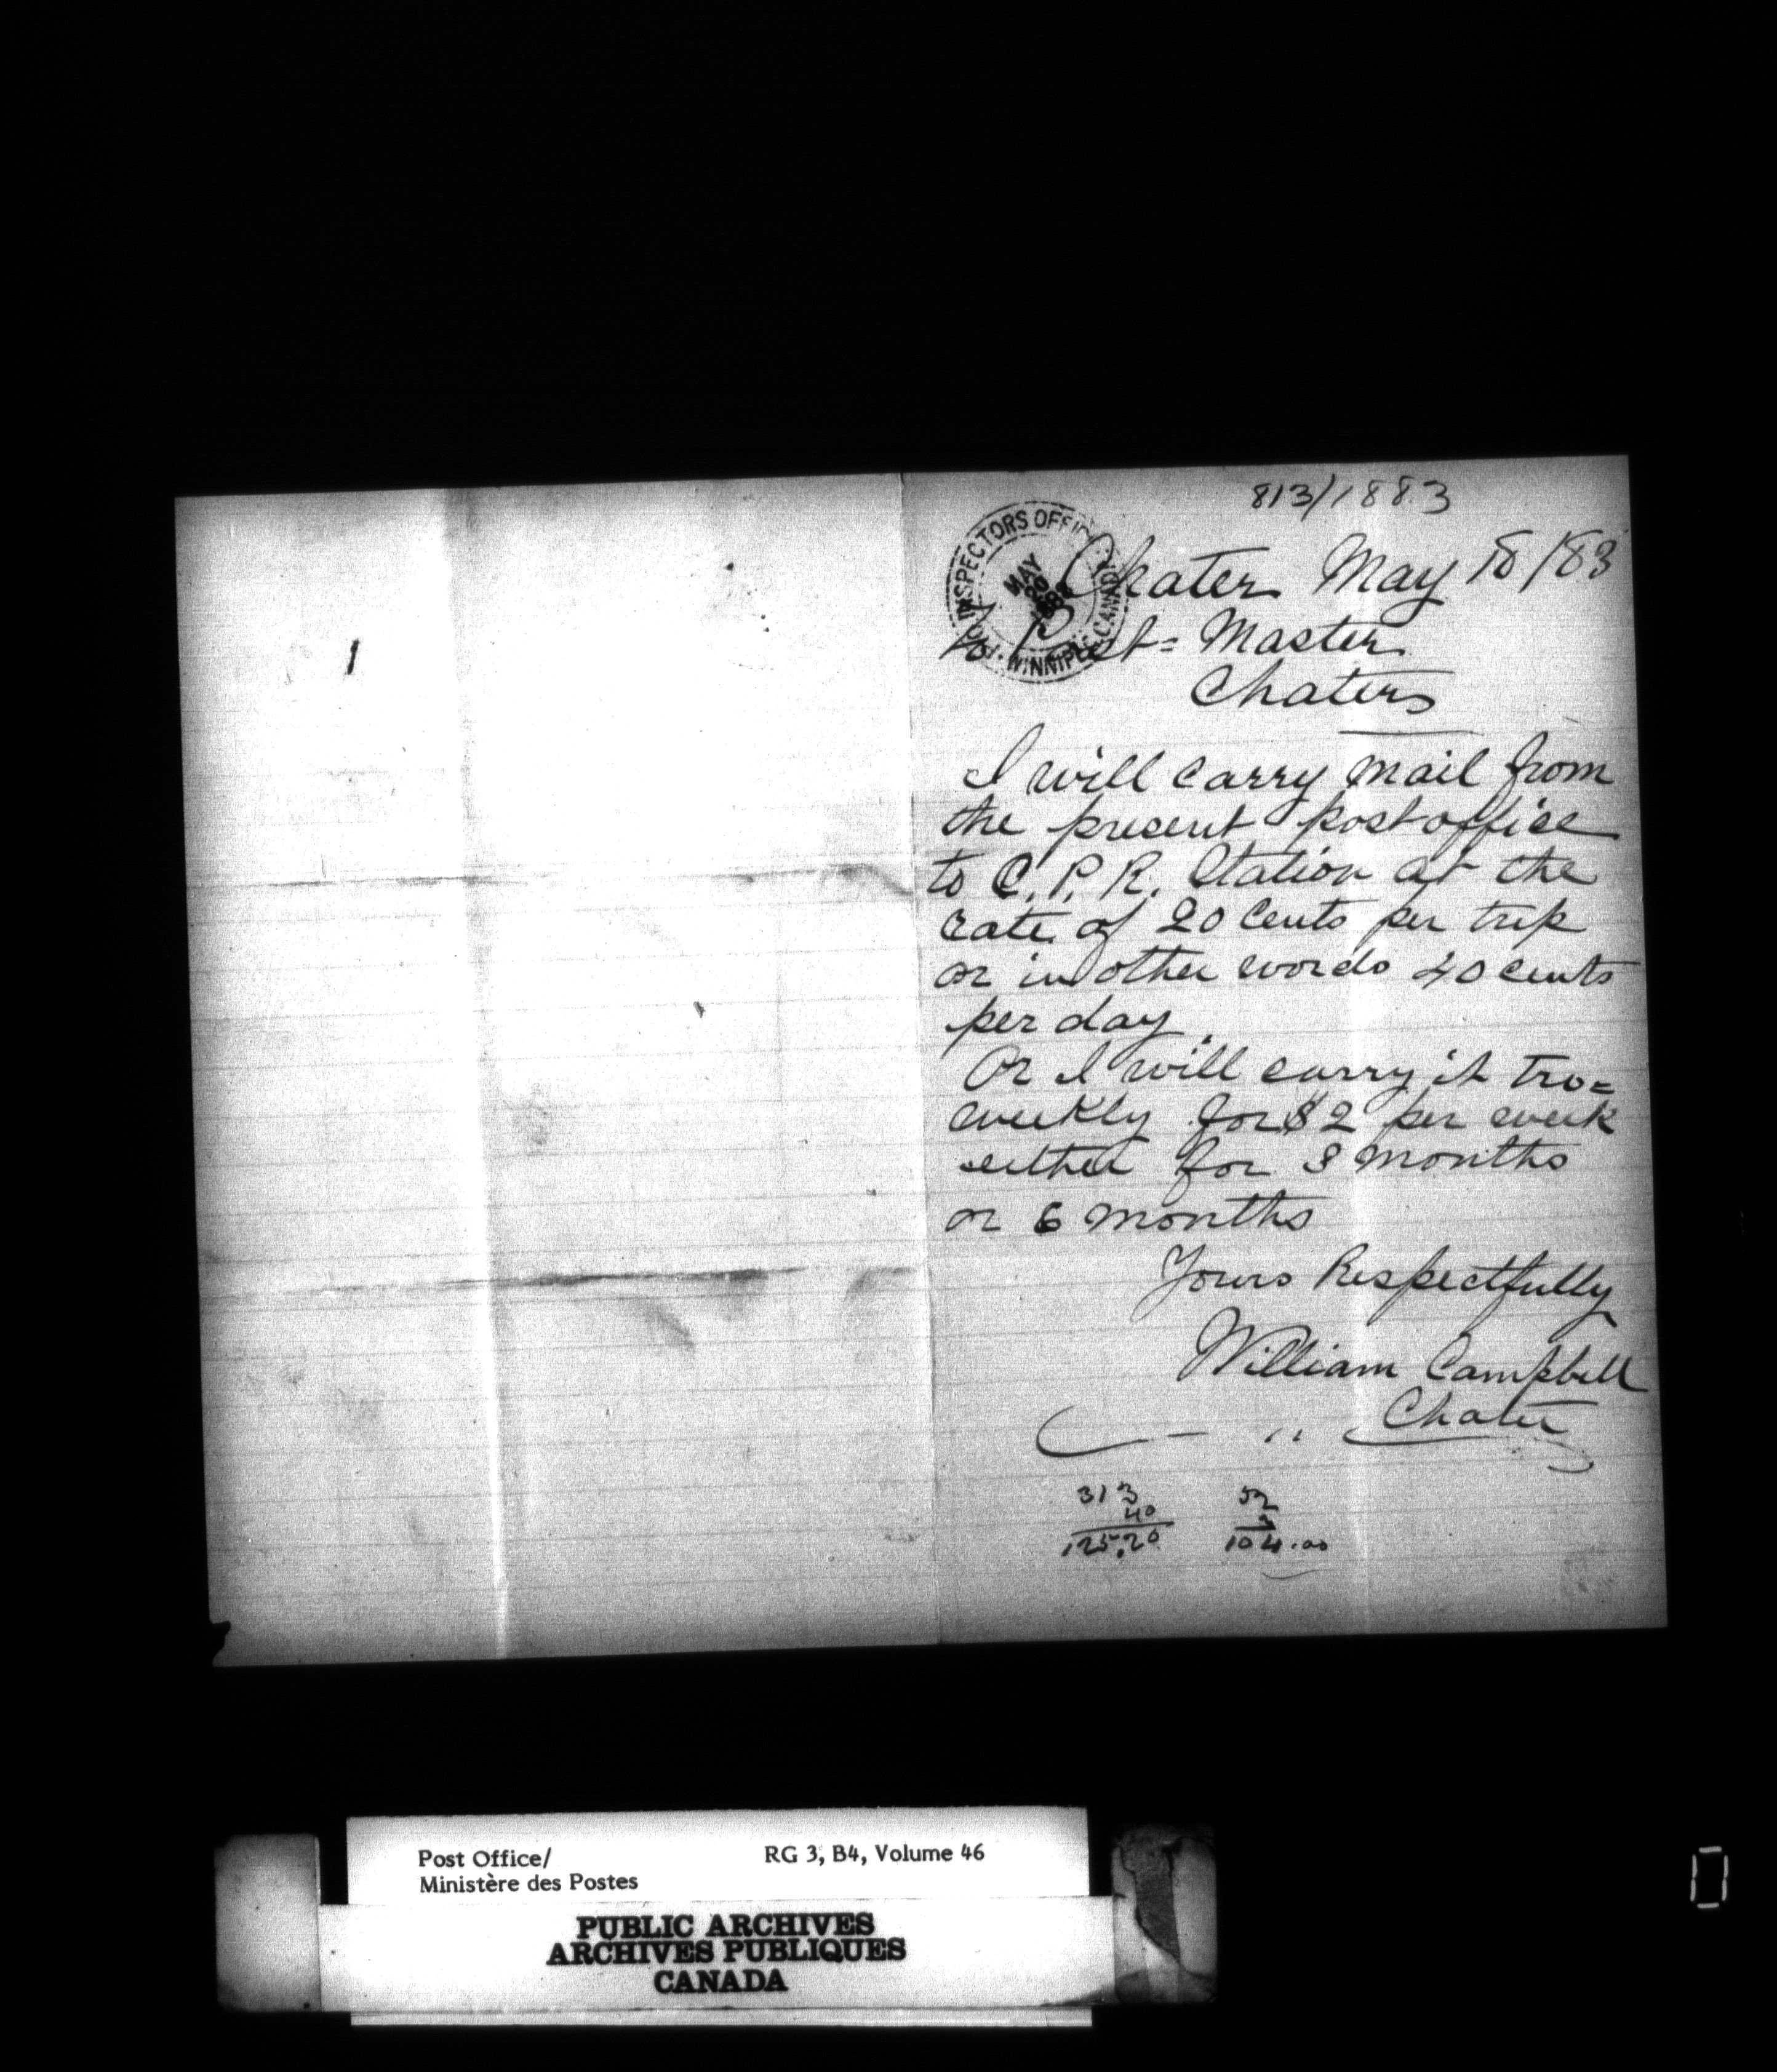 813/1883
POST INSPECTORS OFFICE WINNIPEG, CANADA
MAY
20
Chater May 18/83
To Post-Master
Chaters
I will carry mail from
the present postoffice
to C.P.R. Station at the
rate of 20 cents per trip
or in other words 40 cents
per day.
Or I will carry it
weekly for $2 per week
either for 3 months
or 6 months
Yours Respectfully
William Campbell
Chater
313
40
125.20
52
2
104.00
1
Post Office/
Ministère des Postes
RG 3, B4, Volume 46
PUBLIC ARCHIVES
ARCHIVES PUBLIQUES
CANADA
0